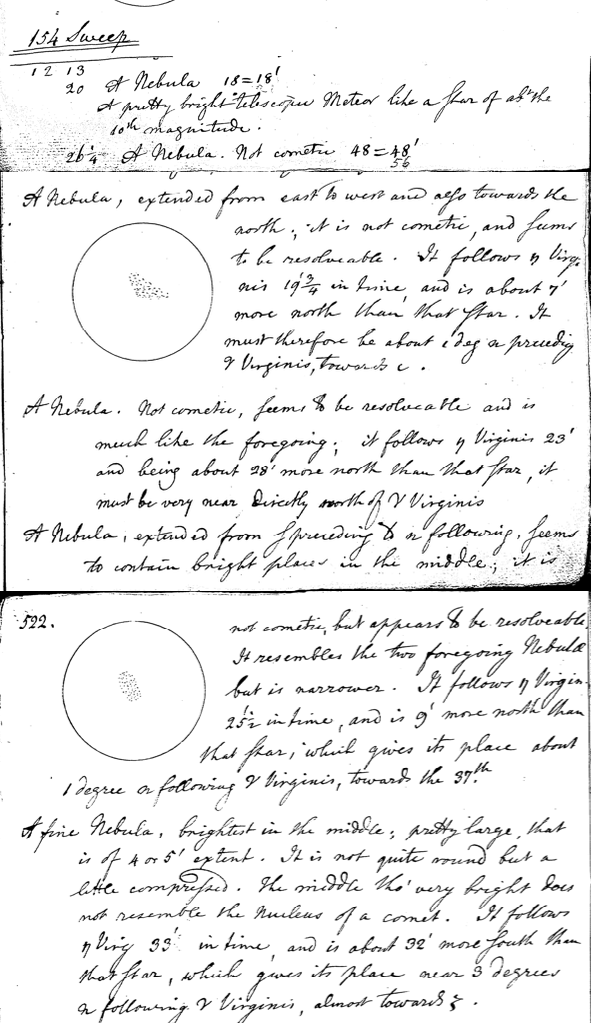 154 Sweep
12 13
20 A Nebula 18=18'
A pretty bright telescopic Meteor like a Star of abt the
10th magnitude.
26 1/4 A Nebula. Not cometic 48=48'
56
A Nebula, extended from east to west and also towards the
north; it is not cometic, and seems
to be resolveable. It follows η Virgi
nis 19' 3/4 in time, and is about 7'
more north than that Star. It
must therefore be about 1 deg n preceding
γ Virginis, towards c.
A Nebula. Not cometic, seems to be resolveable and is
much like the foregoing; it follows η Virginis 23'
and being about 28' more north than that Star, it
must be very near Directly north of γ Virginis
A Nebula, extended from s preceding to n following. Seems
to contain bright places in the middle; it is
522.
not cometic, but appears to be resolveable.
It resembles the two foregoing Nebulæ
but is narrower. It follows η Virgin.
25' 1/2 in time, and is 9' more north than
that Star; which gives its place about
1 degree n following γ Virginis, towards the 37th
A fine Nebula, brightest in the middle; pretty large, that
is of 4 or 5' extent. It is not quite round but a
little compressed. The middle tho' very bright does
not resemble the Nucleus of a comet. It follows
η Virg 33' in time, and is about 32' more South than
that Star, which gives its place near 3 degrees
n following γ Virginis, almost towards ζ.